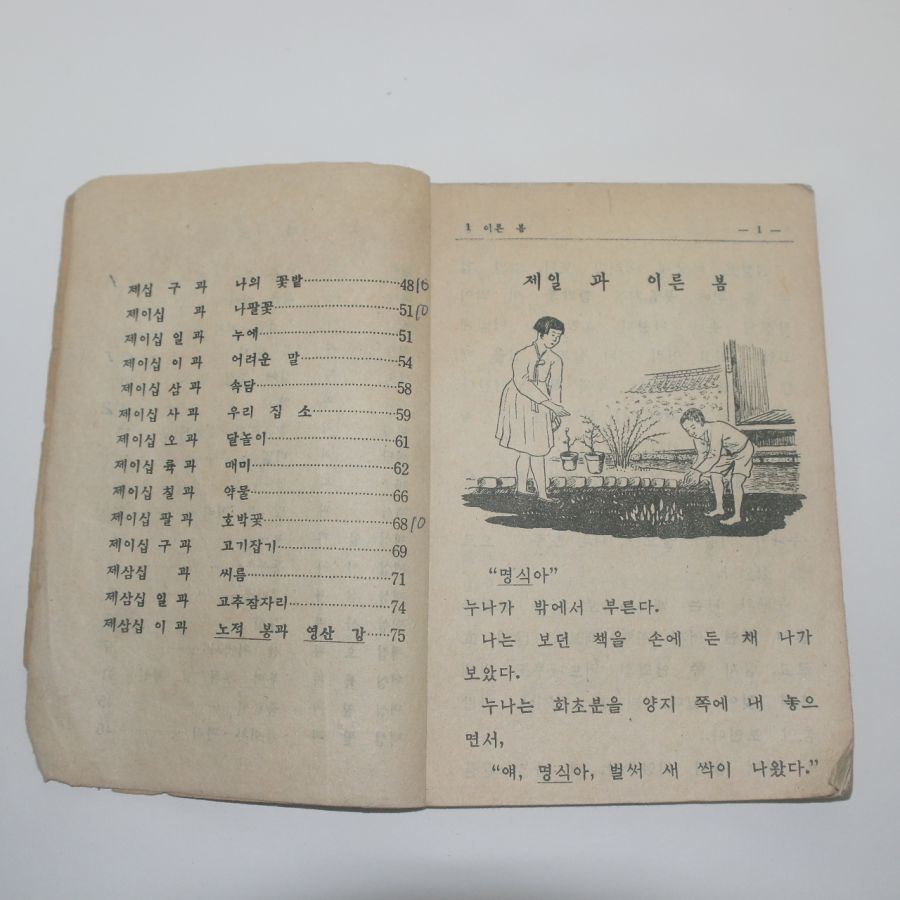 제십 구 과 나의 꽃밭 48 16
제이십 과 나팔꽃 51 10
제이십 일 과 누에 51
제이십 이 과 어려운 말 54
제이십 삼 과 속담 58
제이십 사 과 우리 집 소 59
제이십 오 과 달놀이 61
제이십 륙 과 매미 62
제이십 칠 과 약물 66
제이십 팔 과 호박꽃 68 10
제이십 구 과 고기잡기 69
제삼십 과 씨름 71
제삼십 일 과 고추잠자리 74
제삼십 이 과 노적 봉과 영산 강 75
1 이른 봄 — 1 —
제일 과 이른 봄
“명식아”
누나가 밖에서 부른다.
나는 보던 책을 손에 든 채 나가
보았다.
누나는 화초분을 양지 쪽에 내 놓으
면서,
“얘, 명식아, 벌써 새 싹이 나왔다.”